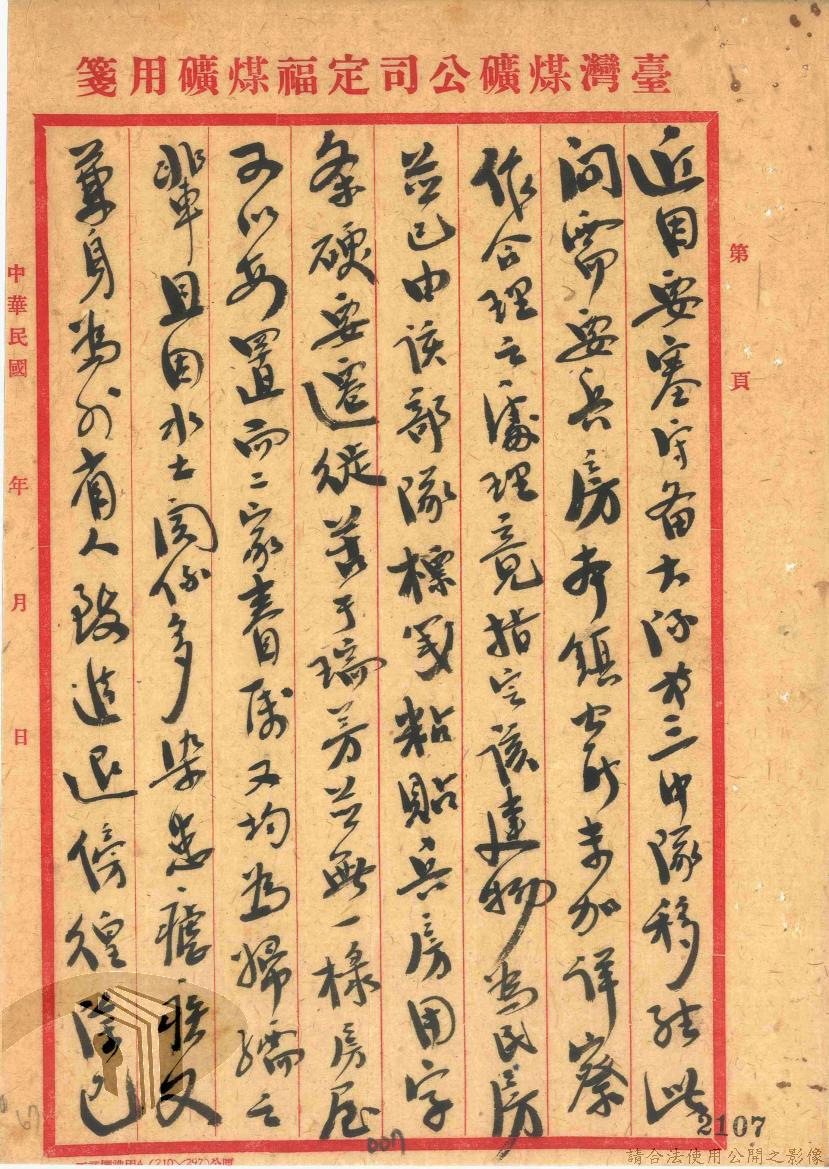 臺灣煤礦公司定福煤礦用箋
第 頁
近因要塞守备大隊第三中隊移駐此
间需要兵房本鎮公所未加详察
作合理之處理竟指定該建物為民房
並已由該部隊標箋粘貼兵房用字
条硬要遷徙苦于瑞芳並無一椽房屋
可以安置而二家眷属又均為婦孺之
輩且因水土関係多染患瘧疾又
單身為外省人致進退傍徨除已
中華民國 年 月 日
2107
007
請合法使用公開之影像